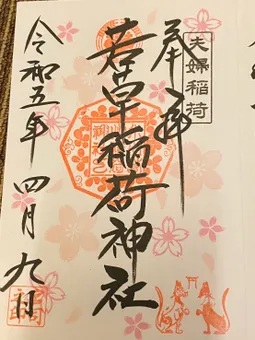 夫婦稲荷
奉拝
若草稲荷神社
令和五年
四月九日